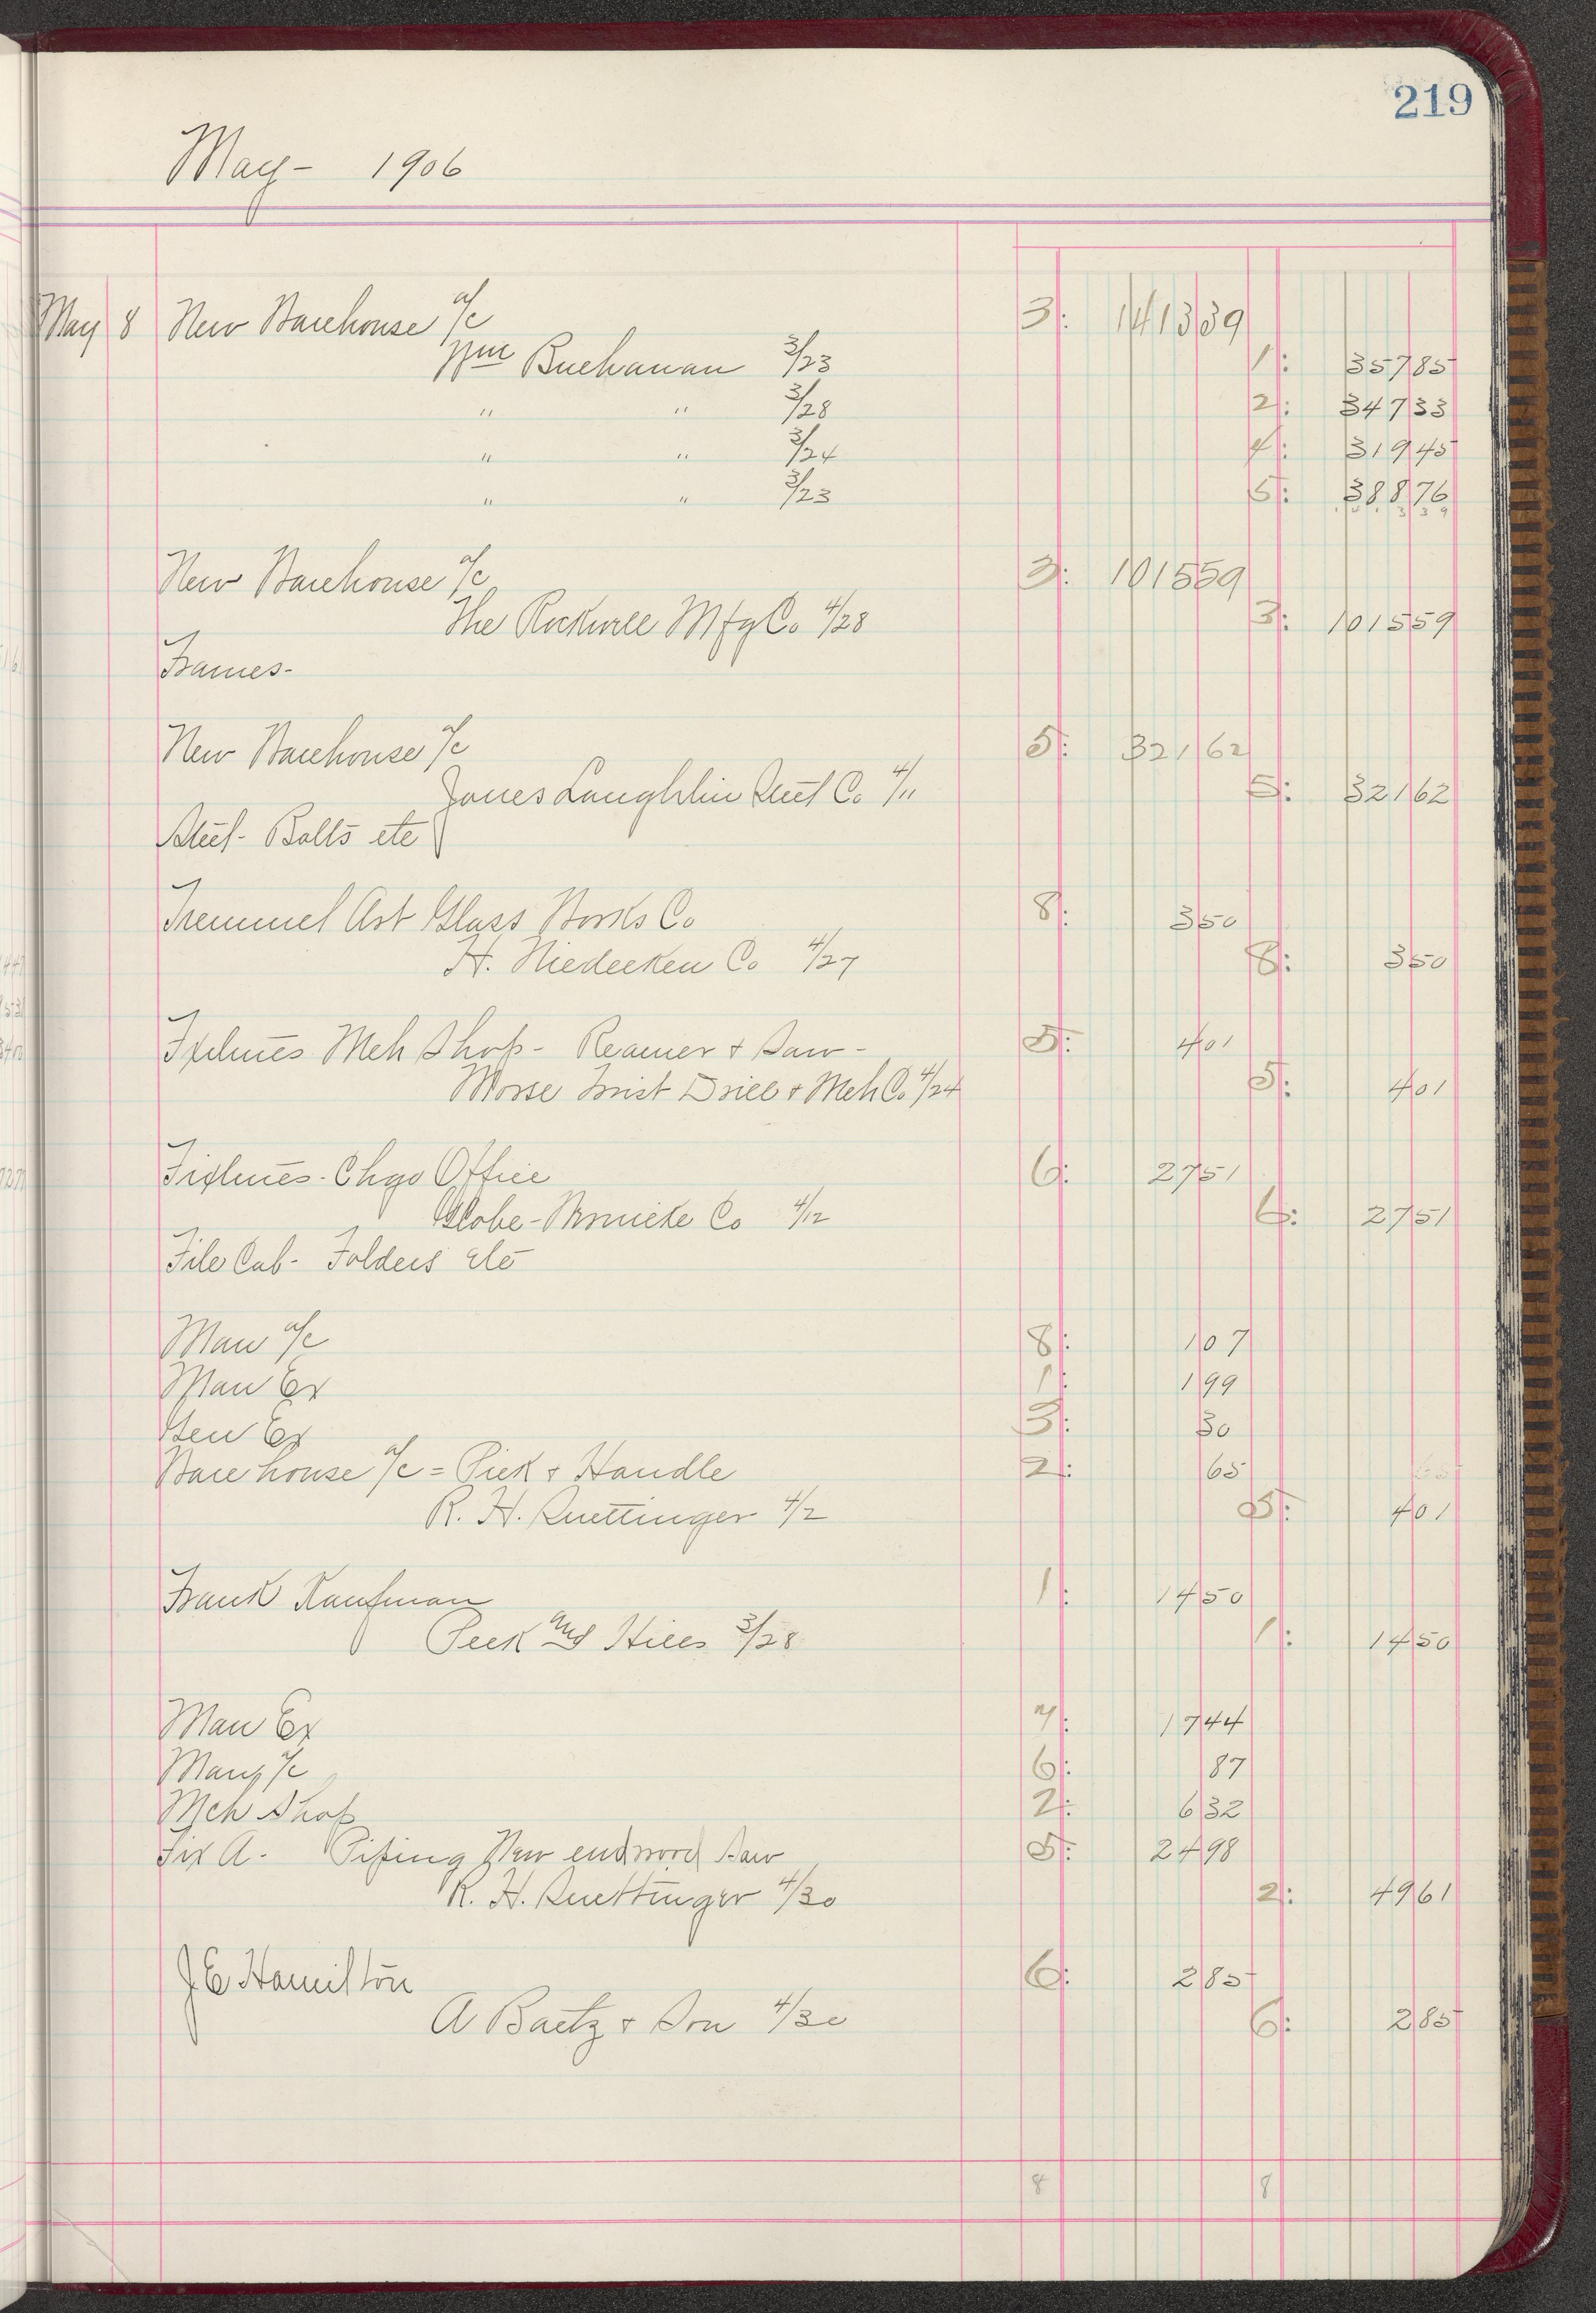 219
May - 1906
May 8 New Warehouse a/c 3: 1413 39
Wm Buchanan 3/23 1: 357 85
" " 3/28 2: 347 33
" " 3/24 4: 319 45
" " 3/23 5: 388 76
New Warehouse a/c 3: 1015 59
The Rockwell Mfg Co 4/28 3: 1015 59
Frames-
New Warehouse a/c 5: 321 62
Jones Laughlin Steel Co 4/11 5: 321 62
Steel- Bolts etc
Tremmel Art Glass Works Co 8: 3 50
H. Niedecken Co 4/27 8: 3 50
Fixtures Mch Shop - Reamer + Saw - 5: 4 01
Morse Twist Drill + Mch Co 4/24 5: 4 01
Fixtures- Chgo Office 6: 27 51
Globe-Wernicke Co 4/12 6: 27 51
File Cab- Folders etc
Man a/c 8: 1 07
Man Ex 1: 1 99
Gen Ex 3: 30
Warehouse a/c = Pick + Handle 2: 65
R. H. Ruettinger 4/2 5: 4 01
Frank Kaufman 1: 14 50
Peek and Hills 3/28 1: 14 50
Man Ex 7: 17 44
Manf a/c 6: 87
Mch Shop 2: 6 32
Fix A. Piping New endwood Saw 5: 24 98
R. H. Ruettinger 4/30 2: 49 61
J E Hamilton 6: 2 85
A Baetz + Son 4/30 6: 2 85
8 8